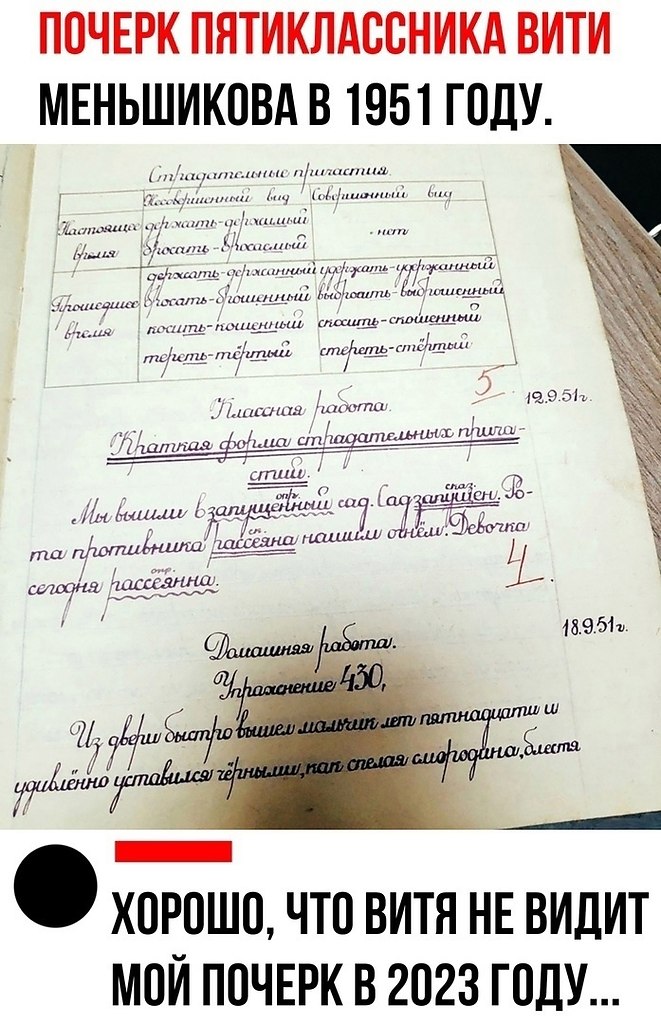 ПОЧЕРК ПЯТИКЛАССНИКА ВИТИ
МЕНЬШИКОВА В 1951 ГОДУ.
Страдательные причастия.
Несовершенный вид Совершенный вид
Настоящее время
держать-держимый
бросать-бросаемый
- нет
Прошедшее время
держать-держанный удержать-удержанный
бросать-брошенный выбросить-выброшенный
косить-кошенный скосить-скошенный
тереть-тёртый стереть-стёртый
5
12.9.51г.
Классная работа.
Краткая форма страдательных прича-
стий.
опр. сказ.
Мы вышли в запущенный сад. Сад запущен. Ро-
ск.
та противника рассеяна нашим огнём. Девочка
опр.
сегодня рассеянна.
4
18.9.51г.
Домашняя работа.
Упражнение 430,
Из двери быстро вышел мальчик лет пятнадцати и
удивлённо уставился чёрными, как спелая смородина, блестя
ХОРОШО, ЧТО ВИТЯ НЕ ВИДИТ
МОЙ ПОЧЕРК В 2023 ГОДУ...